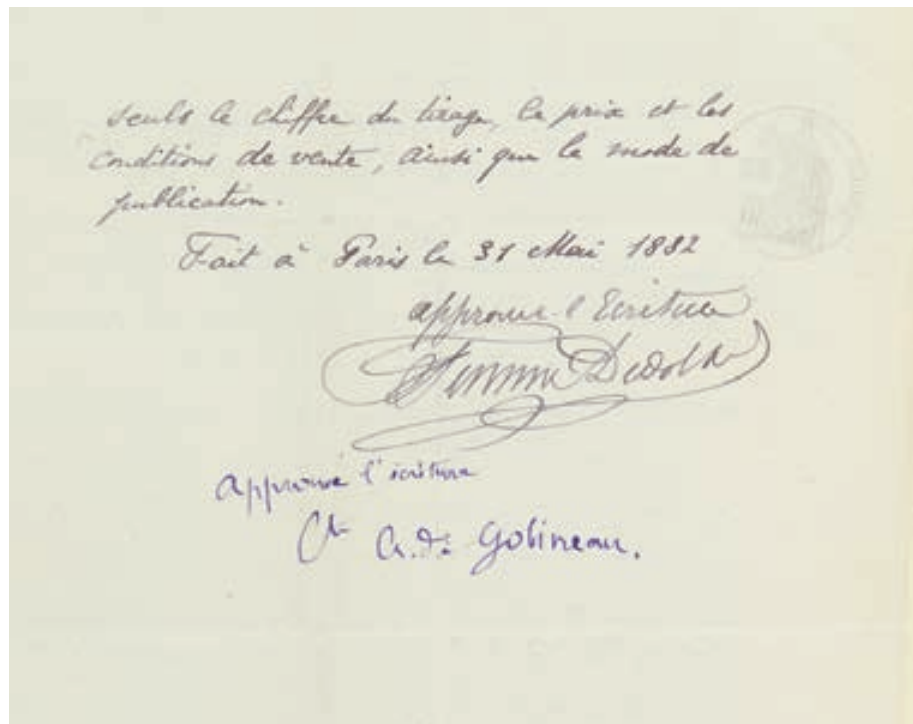 seuls le chiffre du tirage, le prix et les
conditions de vente, ainsi que le mode de
publication.
Fait à Paris le 31 Mai 1882
approuvé l'Ecriture
Firmin Didot
approuvé l'écriture
Cte A. de Gobineau.